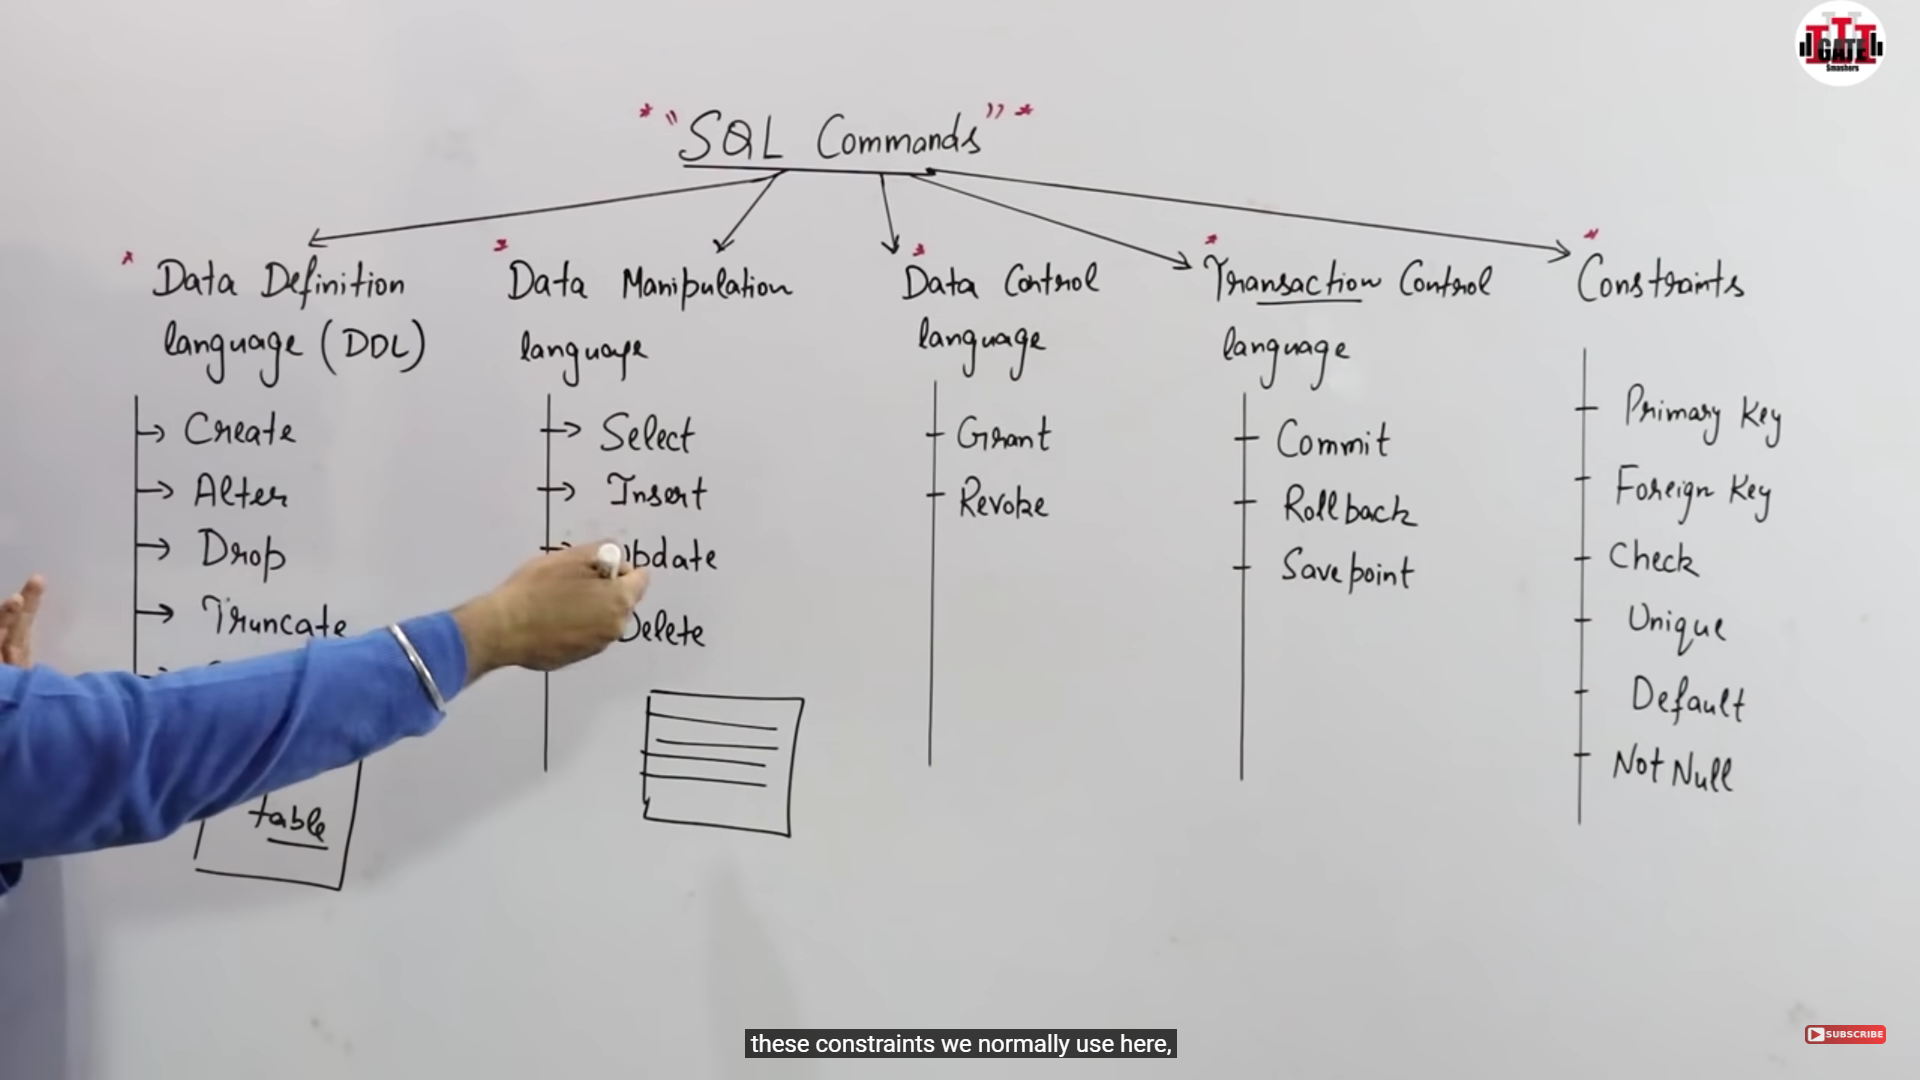 GATE
Smashers
"SQL Commands"
Data Definition
language (DDL)
Create
Alter
Drop
Truncate
table
Data Manipulation
language
Select
Insert
Update
Delete
Data Control
language
Grant
Revoke
Transaction Control
language
Commit
Rollback
Savepoint
Constraints
Primary Key
Foreign Key
Check
Unique
Default
Not Null
these constraints we normally use here,
SUBSCRIBE